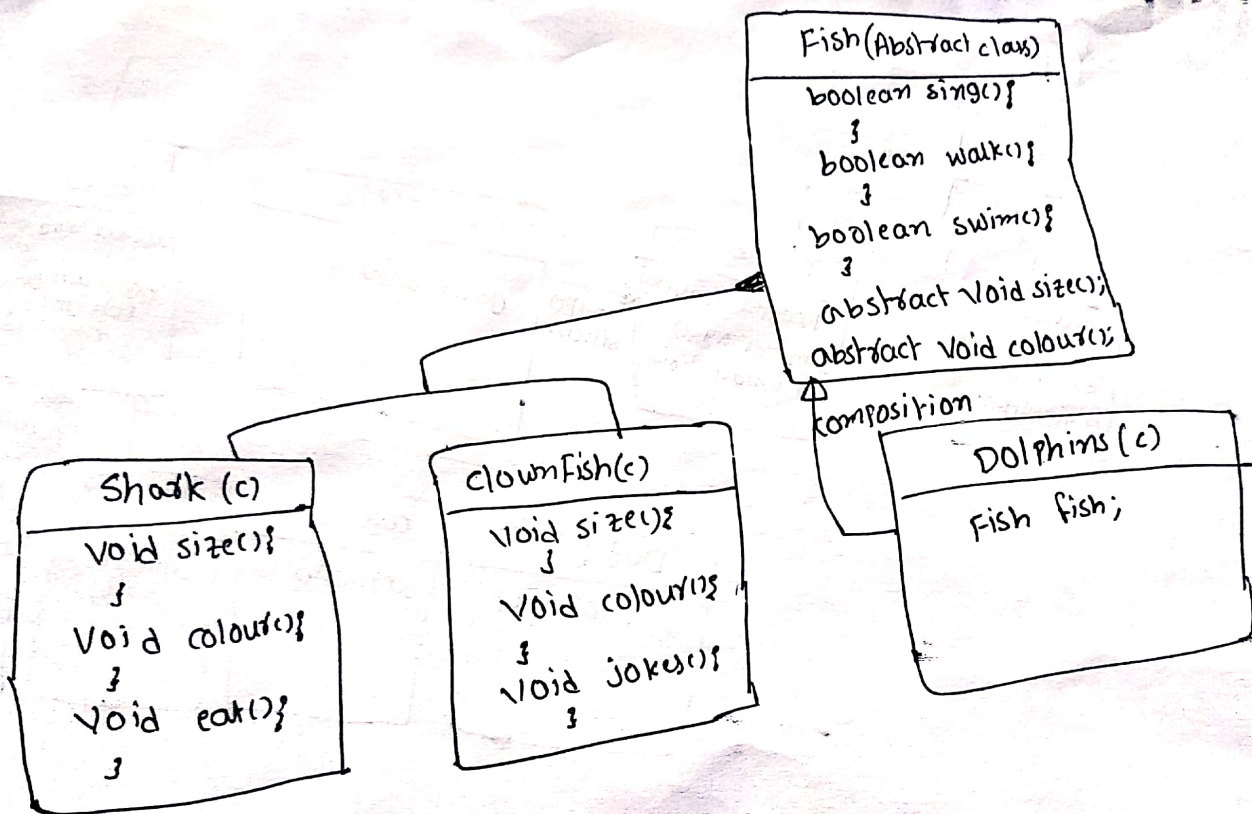 Fish (Abstract class)
boolean sing(){
}
boolean walk(){
}
boolean swim(){
}
abstract void size();
abstract void colour();
composition
Shark (c)
void size(){
}
void colour(){
}
void eat(){
}
clownFish(c)
void size(){
}
void colour(){
}
void jokes(){
}
Dolphins (c)
Fish fish;